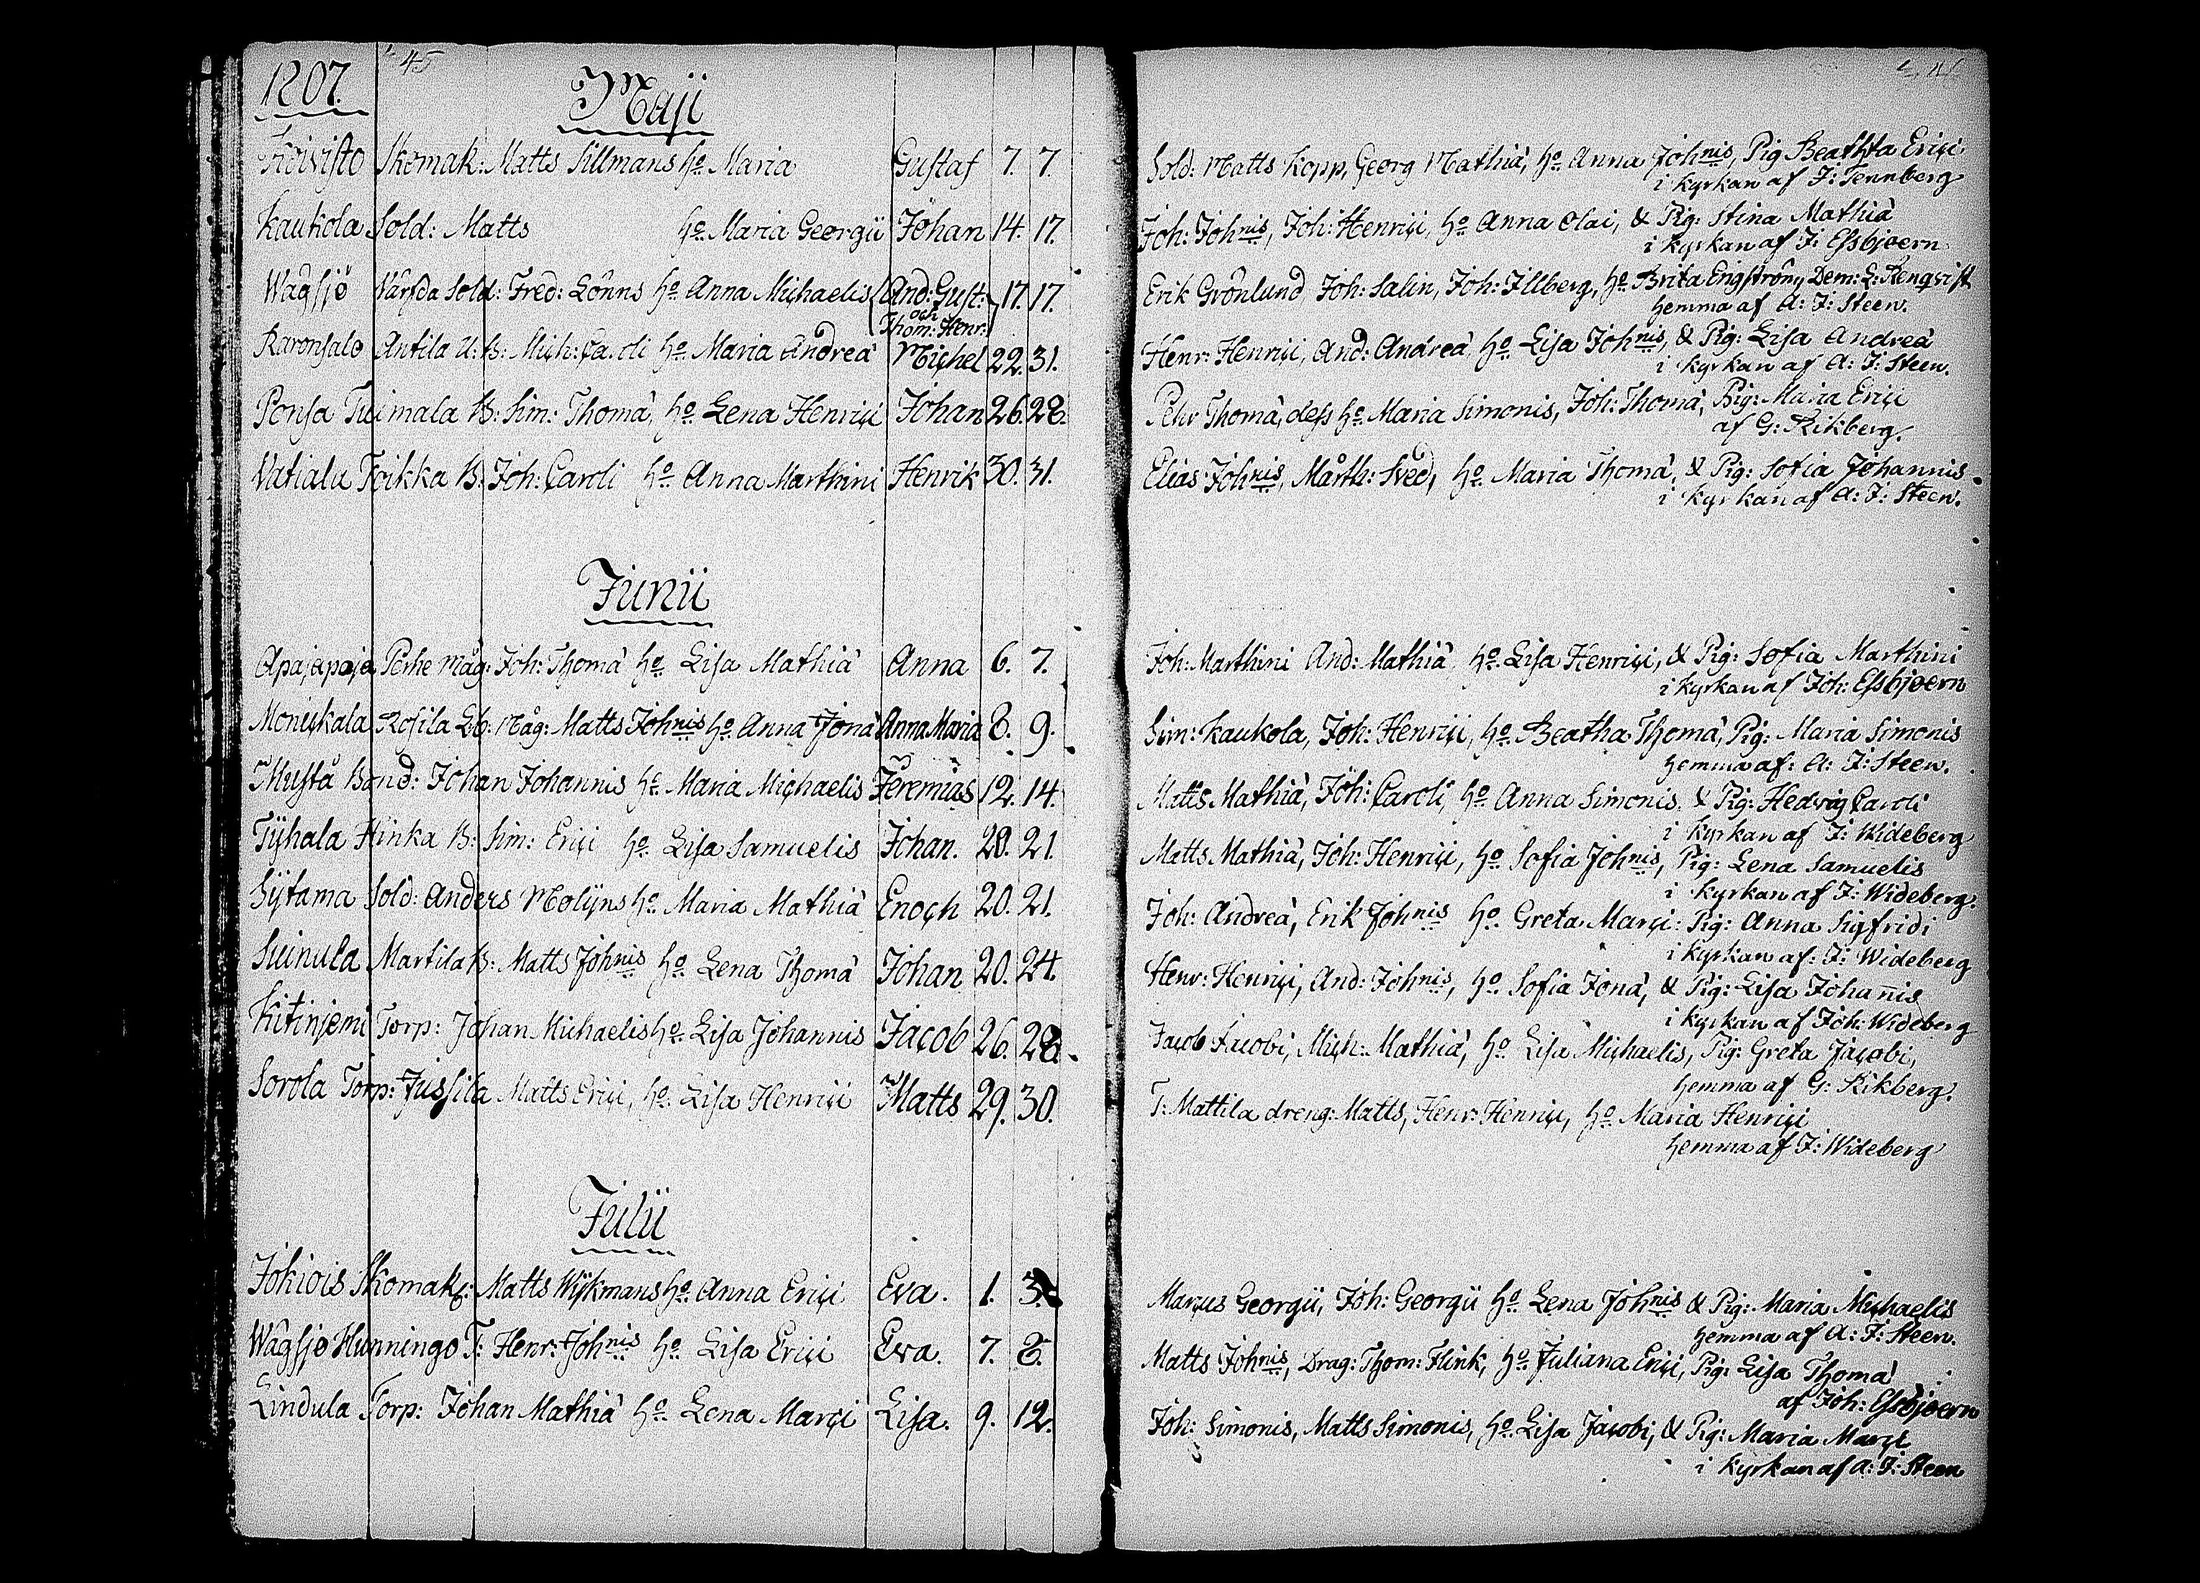 1807. 45
Maji
Koivisto Skomak: Matts Sillmans ho Maria Gustaf 7. 7.
Kaukola Sold: Matts ho Maria Georgii Johan 14. 17.
Wågsjö Värfda Sold: Fred: Lönns ho Anna Michaelis And: Gust: 17. 17.
och
Thom: Henr:
Karonsalo Antila U: B: Mich: Caroli ho Maria Andreæ Michel 22. 31.
Ponsa Tuimala B: Sim: Thomæ, ho Lena Henrici Johan 26. 28.
Vatiala Toikka B: Joh: Caroli ho Anna Marthini Henrik 30. 31.
Junii
Apajapaja Perhe Måg: Joh: Thomæ ho Lisa Mathiæ Anna 6. 7.
Monickala Rosila Måg: Matts Johnis ho Anna Jonæ Anna Maria 8. 9.
Mustå Bond: Johan Johannis ho Maria Michaelis Jeremias 12. 14.
Tÿhala Hinka B: Sim: Erici ho Lisa Samuelis Johan. 20. 21.
Sÿtama Sold: Anders Molÿns ho Maria Mathiæ Enoch 20. 21.
Suinula Martila B: Matts Johnis ho Lena Thomæ Johan 20. 24.
Kitinjemi Torp: Johan Michaelis ho Lisa Johannis Jacob 26. 28.
Sorola Torp: Jussila Matts Erici, ho Lisa Henrici Matts 29. 30.
Julii
Jokiois Skomak: Matts Wÿkmans ho Anna Erici Eva. 1. 3.
Wågsjö Hunningo T: Henr: Johnis ho Lisa Erici Eva. 7. 8.
Lindula Torp: Johan Mathiæ ho Lena Marci Lisa. 9. 12.
Sold: Matts Kopp, Georg Mathiæ, ho Anna Johnis, Pig Beatha Erici
i kyrkan af J: Tennberg
Joh: Johnis, Joh: Henrici, ho Anna Olai, & Pig: Stina Mathiæ
i kyrkan af J: Essbjoern
Erik Grönlund, Joh: Salin, Joh: Illberg, ho Brita Engström, Dem: L: Rengvist
hemma af A: J: Steen.
Henr: Henrici, And: Andreæ, ho Lisa Johnis, & Pig: Lisa Andreæ
i kyrkan af A: J: Steen.
Pehr Thomæ, dess ho Maria Simonis, Joh: Thomæ, Pig: Maria Erici
af G: Kikberg.
Elias Johnis, Mårth: Sved, ho Maria Thomæ, & Pig: Sofia Johannis
i kyrkan af A: J: Steen.
Joh: Marthini And: Mathiæ, ho Lisa Henrici, & Pig: Sofia Marthini
i kyrkan af Joh: Essbjoern
Sim: Kaukola, Joh: Henrici, ho Beatha Thomæ, Pig: Maria Simonis
hemma af: A: J: Steen.
Matts Mathiæ, Joh: Caroli, ho Anna Simonis, & Pig: Hedvig Caroli
i kyrkan af J: Wideberg
Matts Mathiæ, Joh: Henrici, ho Sofia Johnis, Pig: Lena Samuelis
i kyrkan af J: Wideberg.
Joh: Andreæ, Erik Johnis ho Greta Marci: Pig: Anna Sigfridi
i kyrkan af: J: Wideberg
Henr: Henrici, And: Johnis, ho Sofia Jonæ, & Pig: Lisa Johanis
i kyrkan af Joh: Wideberg
Jacob Jacobi, Mich: Mathiæ, ho Lisa Michaelis, Pig: Greta Jacobi,
hemma af G: Kikberg.
T: Mattila dreng: Matts, Henr: Henrici, ho Maria Henrici
hemma af J: Wideberg
Marcus Georgii, Joh: Georgii ho Lena Johnis & Pig: Maria Michaelis
hemma af A: J: Steen.
Matts Johnis, Drag: Thom: Flink, ho Juliana Erici, Pig: Lisa Thomæ
af Joh: Essbjoern
Joh: Simonis, Matts Simonis, ho Lisa Jacobi, & Pig: Maria Marci
i kyrkan af A: J: Steen